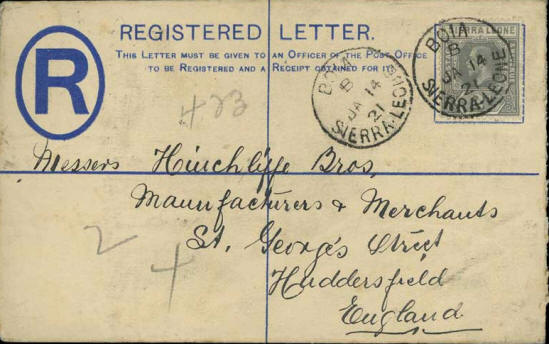 REGISTERED LETTER.
THIS LETTER MUST BE GIVEN TO AN OFFICER OF THE POST OFFICE
TO BE REGISTERED AND A RECEIPT OBTAINED FOR IT.
R
SIERRA LEONE
BOIA
B
JA 14
21
SIERRA-LEONE
BOIA
B
JA 14
21
SIERRA-LEONE
423
Messers Hinchliffe Bros,
Manufacturers & Merchants
St. George's Street
Huddersfield
England
2
4